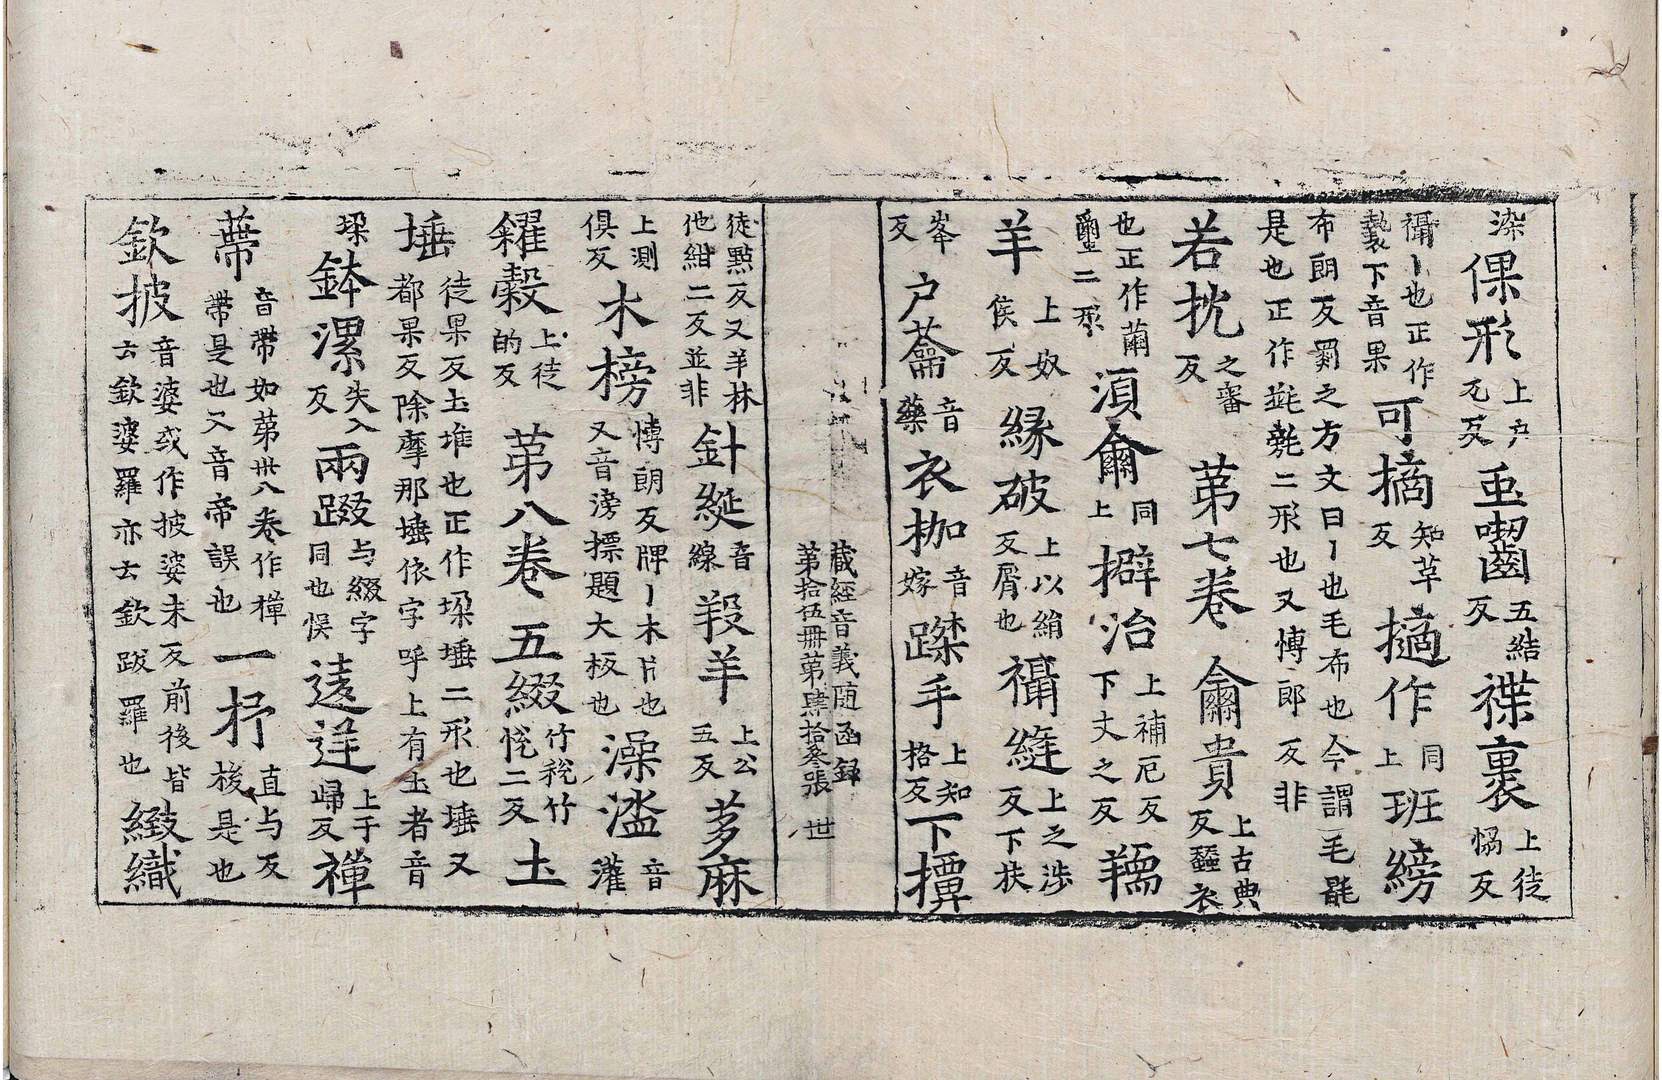 㳶倮形上户瓦反𠱥齧五結反褋裹上徒恊反
襵丨也正作褺下音果可摘知革反擿作同上班縍
布朗反罽之方文曰丨也毛布也今謂毛毼
是也正作㲠㲝二形也又愽郎反非
若抌之審反第七卷䉵貴上古典反蠒衣
也正作繭䙙二形湏䉵同上擗治上補厄反下丈之反羺
羊上奴侯反縁破上以絹反屑也襵縫上之涉反下扶
峯反户蘥音藥衣枷音嫁蹀手上知格反下擤
藏經音義随函録
第拾伍冊第肆拾叄張 世
徒點反又羊林他紺二反並非針綖音線羖羊上公五反䓯麻
上測俱反木榜愽朗反牌丨木片也又音滂摽題大板也澡㵎音灌
糴穀上徒的反第八卷五綴竹税竹恱二反土
埵徒果反土堆也正作垜埵二形也埵又都果反除摩那埵依字呼上有土者音
垜鉢漯失入反兩畷与綴字同也悮逺逬上于歸反襌
䓳音帶如苐卌八卷作襌帶是也又音帝誤也一杼直与反梭是也
欽披音婆或作披婆未反前後皆云欽婆羅亦云欽跋羅也緻織